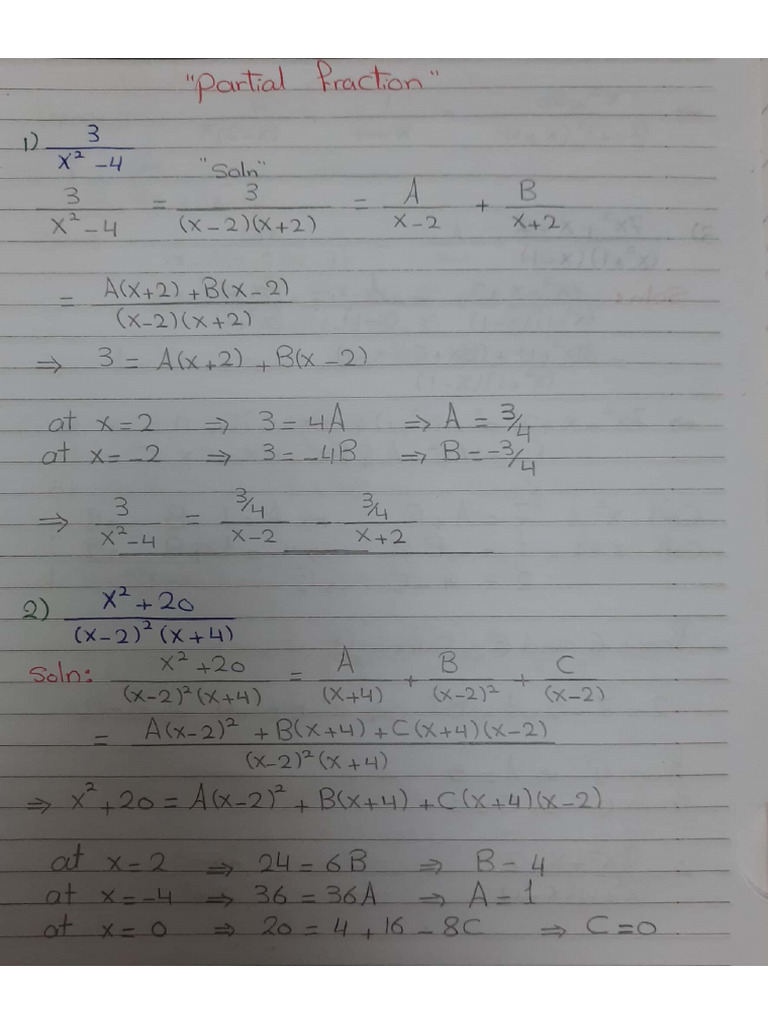 "Partial fraction"
1) 3/(x² - 4)
"Soln"
3/(x² - 4) = 3/((x-2)(x+2)) = A/(x-2) + B/(x+2)
= (A(x+2) + B(x-2))/((x-2)(x+2))
⇒ 3 = A(x+2) + B(x-2)
at x = 2 ⇒ 3 = 4A ⇒ A = 3/4
at x = -2 ⇒ 3 = -4B ⇒ B = -3/4
⇒ 3/(x²-4) = (3/4)/(x-2) - (3/4)/(x+2)
2) (x² + 20)/((x-2)²(x+4))
Soln: (x² + 20)/((x-2)²(x+4)) = A/(x+4) + B/(x-2)² + C/(x-2)
= (A(x-2)² + B(x+4) + C(x+4)(x-2))/((x-2)²(x+4))
⇒ x² + 20 = A(x-2)² + B(x+4) + C(x+4)(x-2)
at x = 2 ⇒ 24 = 6B ⇒ B = 4
at x = -4 ⇒ 36 = 36A ⇒ A = 1
at x = 0 ⇒ 20 = 4 + 16 - 8C ⇒ C = 0